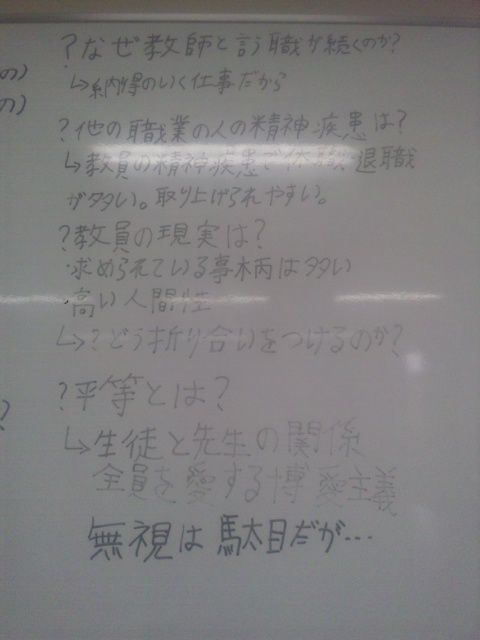 ?なぜ教師と言う職が続くのか?
↳納得のいく仕事だから
の)
の)
?他の職業の人の精神疾患は?
↳教員の精神疾患で休職 退職
が多い。取り上げられやすい。
?教員の現実は?
・求められている事柄は多い
・高い人間性
↳?どう折り合いをつけるのか?
?平等とは?
?
↳生徒と先生の関係
全員を愛する博愛主義
無視は駄目だが…